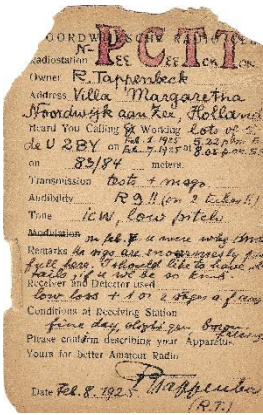 NOORDWIJKSCHE RADIO
N-PCTT
Radiostation PEE CEE
Owner R. Tappenbeck
Address Villa Margaretha
Noordwijk aan Zee, Holland
Heard You Calling & Working lots of
de U 2BY on Feb. 1 1925 at 5.22 p.m.
Feb. 7. 1925 at 8.05 p.m.
on 83/84 meters.
Transmission tests + msgs.
Audibility R9!! (on 2 tubes!!)
Tone icw, low pitch
Modulation on feb. 7 u were
Remarks Ur sigs are enormously
full here. I should like to have
if u wl be so kind
Receiver and Detector used
low loss + 1 or 2 stages a.f.
Conditions at Receiving Station
fine day, slight
Please confirm describing your Apparatus
Yours for better Amateur Radio
RTappenbeck
Date Feb. 8. 1925
(R.T.)